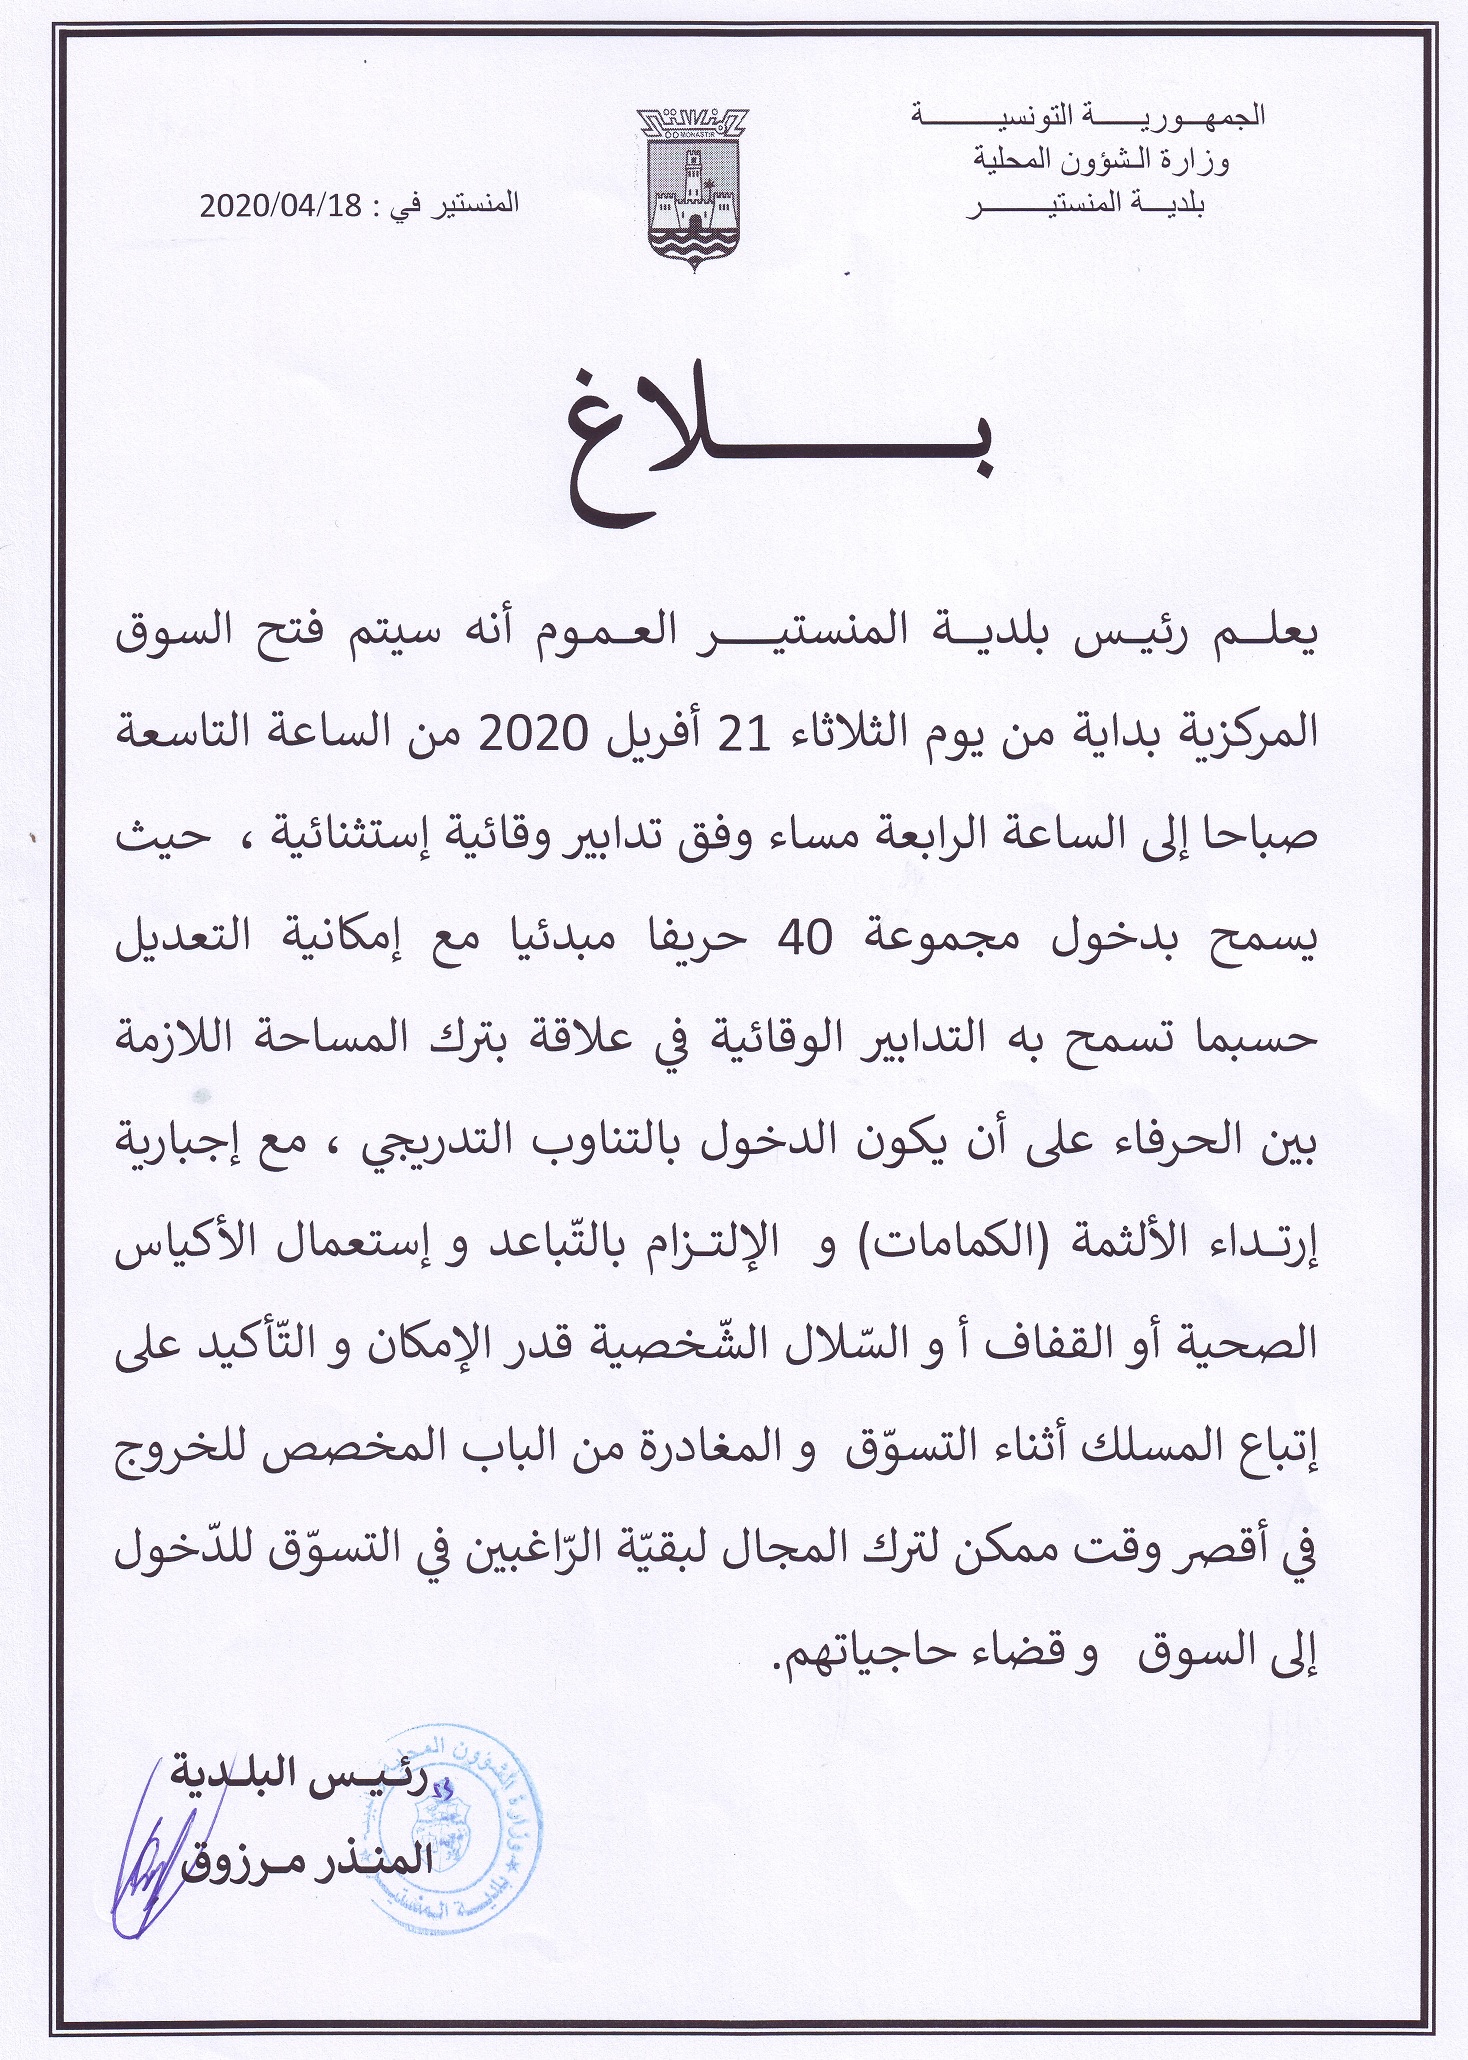 الجمهورية التونسية
وزارة الشؤون المحلية
بلدية المنستير
المنستير
MONASTIR
المنستير في : 2020/04/18
بلاغ
يعلم رئيس بلدية المنستير العموم أنه سيتم فتح السوق
المركزية بداية من يوم الثلاثاء 21 أفريل 2020 من الساعة التاسعة
صباحا إلى الساعة الرابعة مساء وفق تدابير وقائية إستثنائية ، حيث
يسمح بدخول مجموعة 40 حريفا مبدئيا مع إمكانية التعديل
حسبما تسمح به التدابير الوقائية في علاقة بترك المساحة اللازمة
بين الحرفاء على أن يكون الدخول بالتناوب التدريجي ، مع إجبارية
إرتداء الألثمة (الكمامات) و الإلتزام بالتّباعد و إستعمال الأكياس
الصحية أو القفاف أ و السّلال الشّخصية قدر الإمكان و التّأكيد على
إتباع المسلك أثناء التسوّق و المغادرة من الباب المخصص للخروج
في أقصر وقت ممكن لترك المجال لبقيّة الرّاغبين في التسوّق للدّخول
إلى السوق و قضاء حاجياتهم.
رئيس البلدية
المنذر مرزوق
وزارة الشؤون المحلية
بلدية المنستير